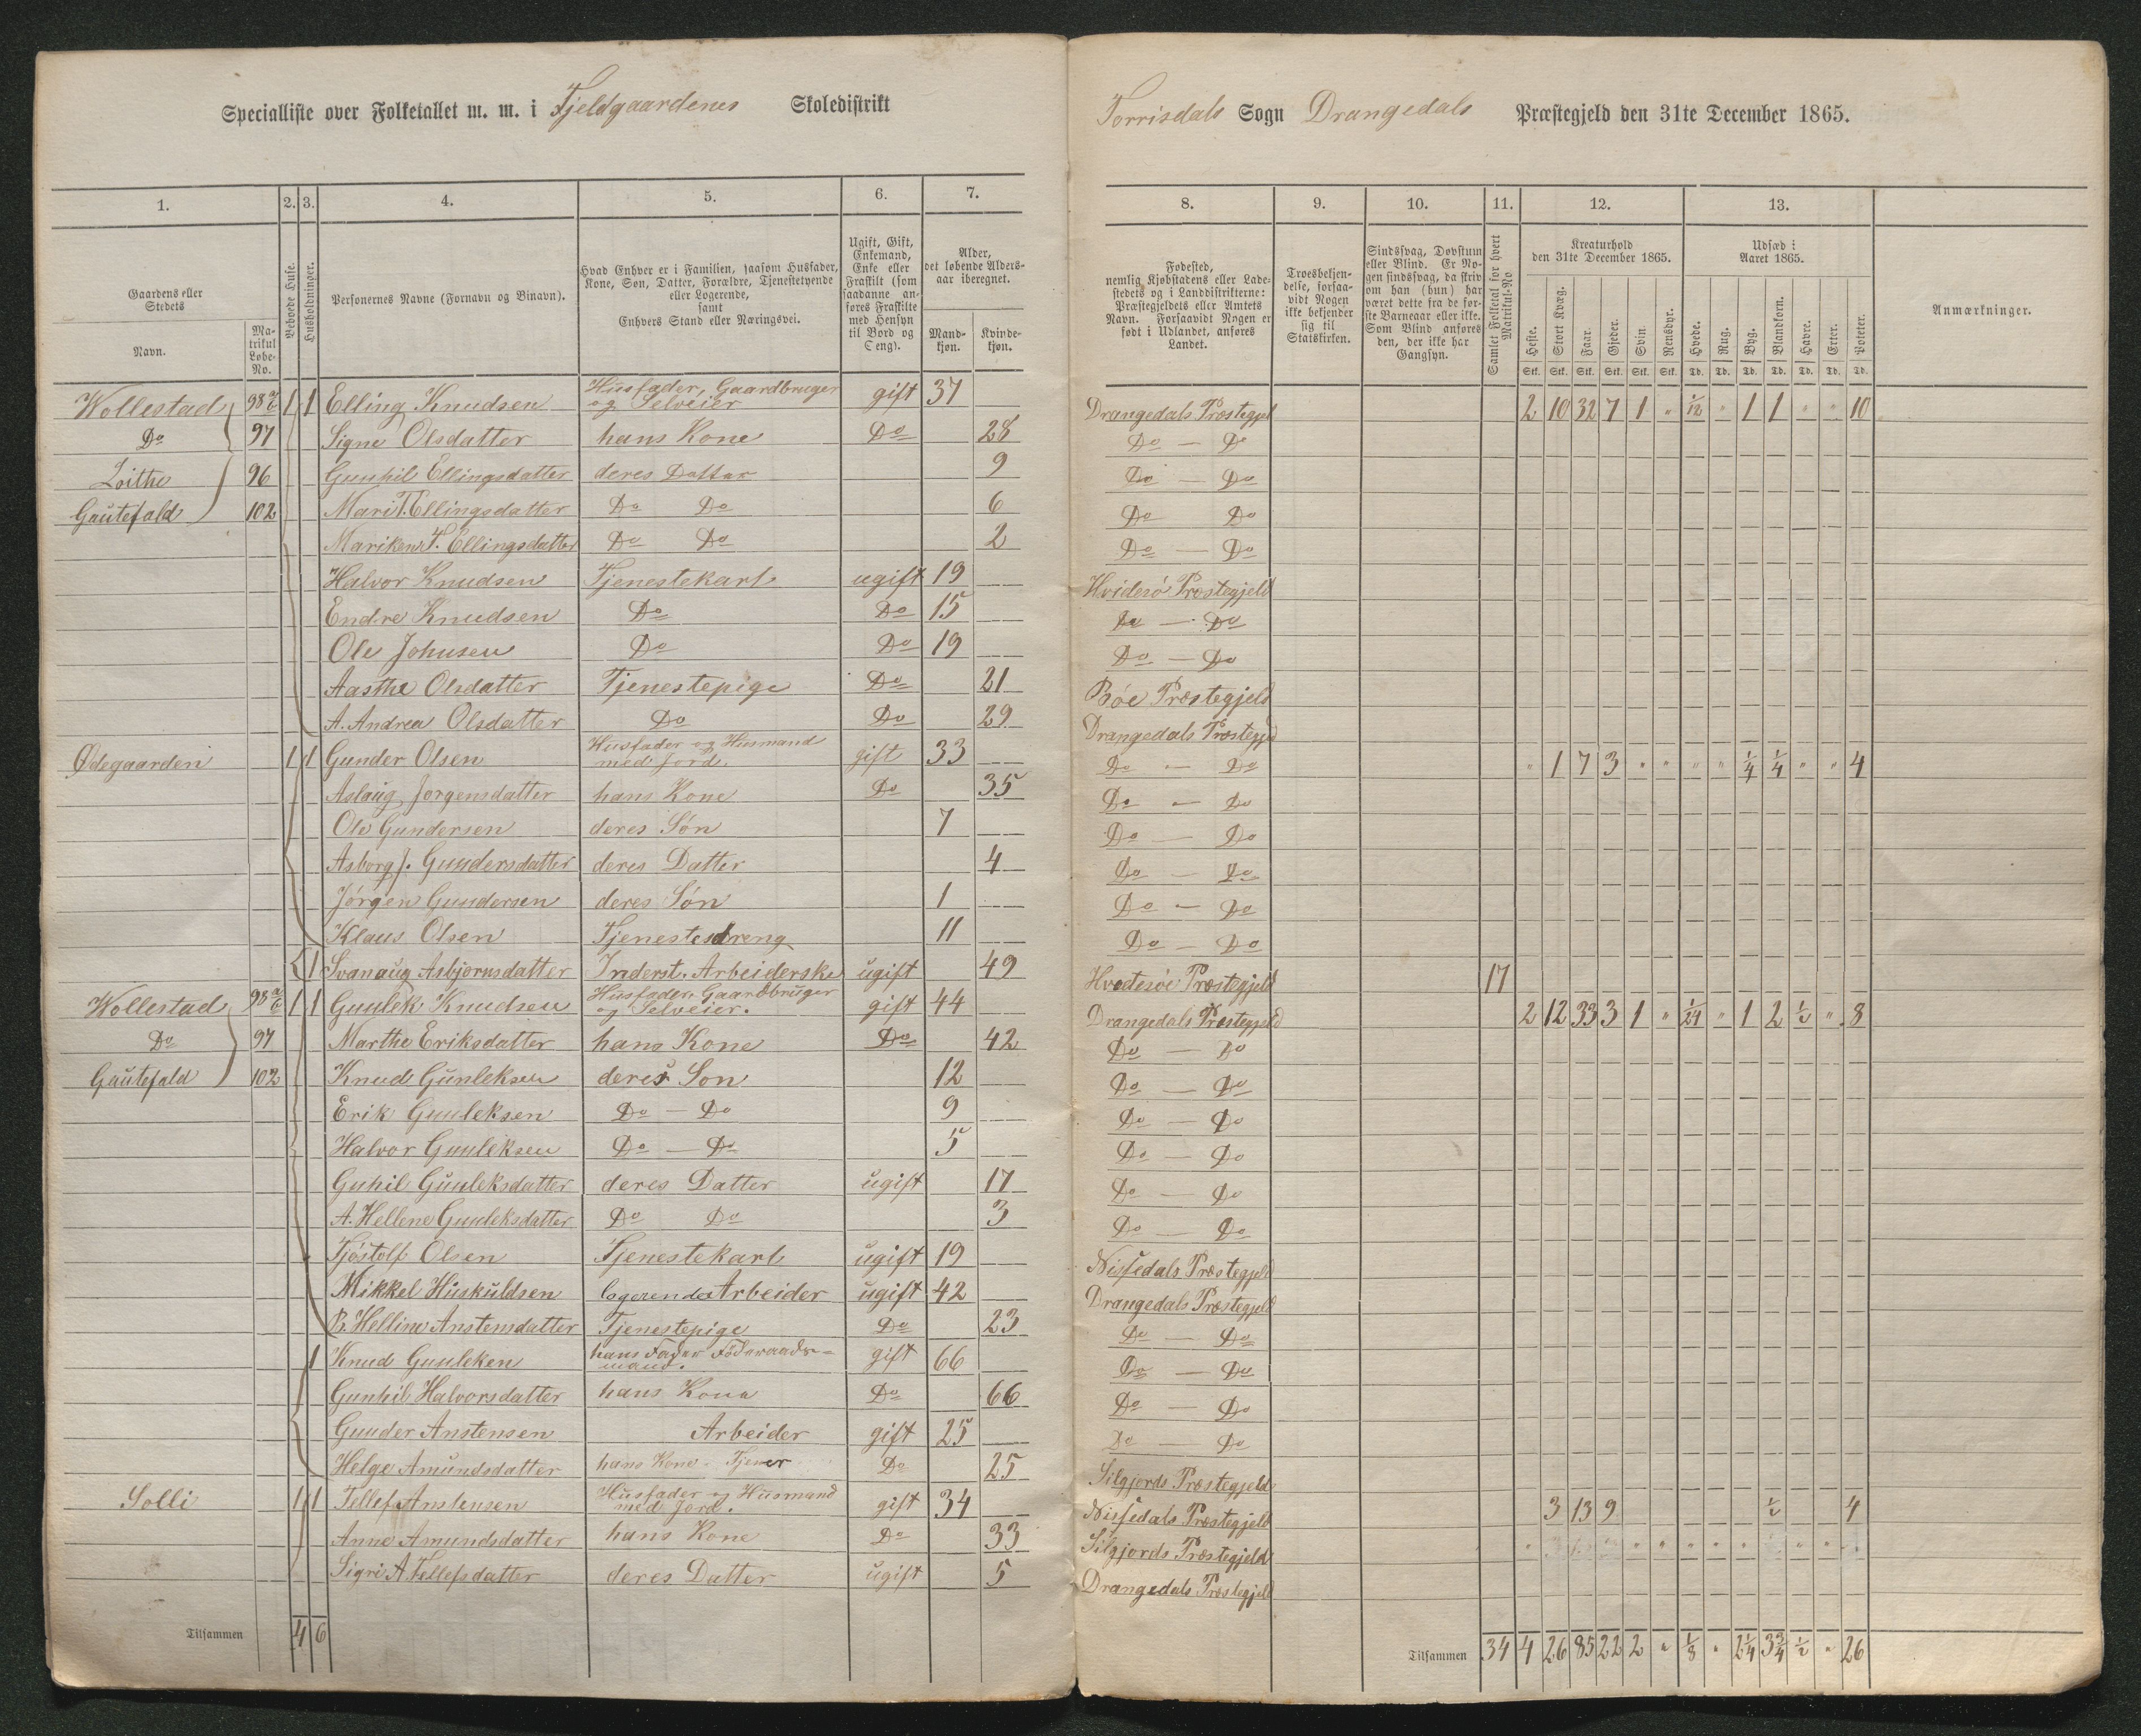 Specialliste over Folketallet m. m. i Fjeldgaardenes Skoledistrikt
Torrisdals Sogn Drangedals Præstegjeld den 31te December 1865.
1. 2. 3. 4. 5. 6. 7. 8. 9. 10. 11. 12. 13.
Gaardens eller Stedets
Navn.
Matrikul Løbe-No.
Beboede Huse.
Husholdninger.
Personernes Navne (Fornavn og Binavn).
Hvad Enhver er i Familien, saasom Husfader, Kone, Søn, Datter, Forældre, Tjenestetyende eller Logerende, samt Enhvers Stand eller Næringsvei.
Ugift, Gift, Enkemand, Enke eller Fraskilt (som saadanne anføres Fraskilte med Hensyn til Bord og Seng).
Alder, det løbende Alders-aar iberegnet.
Mand-kjøn. Kvinde-kjøn.
Fødested, nemlig Kjøbstadens eller Ladestedets og i Landdistrikterne: Præstegjeldets eller Amtets Navn. Forsaavidt Nogen er født i Udlandet, anføres Landet.
Troesbekjendelse, forsaavidt Nogen ikke bekjender sig til Statskirken.
Sindssvag, Døvstum eller Blind. Er Nogen sindssvag, da skriv om han (hun) har været dette fra de første Barneaar eller ikke. Som Blind anføres den, der ikke har Gangsyn.
Samlet Folketal for hvert Matrikul-No
Kreaturhold den 31te December 1865.
Heste. Stort Kvæg. Faar. Gjeder. Svin. Rensdyr.
Stk. Stk. Stk. Stk. Stk. Stk.
Udsæd i Aaret 1865.
Hvede. Rug. Byg. Blandkorn. Havre. Erter. Poteter.
Td. Td. Td. Td. Td. Td. Td.
Anmærkninger.
Wollestad 98 b 1 1 Elling Knudsen Husfader, Gaardbruger og Selveier gift 37 Drangedals Præstegjel 2 10 32 7 1 " 1/12 " 1 1 " " 10
Do 97 Signe Olsdatter hans Kone Do 28 Do — Do
Loithe 96 Gunhil Ellingsdatter deres Datter 9 Do — Do
Gautefald 102 Mari T. Ellingsdatter Do Do 6 Do Do
Mariken T. Ellingsdatter Do Do 2 Do — Do
Halvor Knudsen Tjenestekarl ugift 19 Hvidesø Præstegjeld
Endre Knudsen Do Do 15 Do — Do
Ole Johnsen Do Do 19 Do — Do
Aasthe Olsdatter Tjenestepige Do 21 Bøe Præstegjeld
A. Andrea Olsdatter Do Do 29 Drangedals Præstegjed
Ødegaarden 1 1 Gunder Olsen Husfader og Husmand med Jord. gift 33 Do — Do " 1 7 3 " " " " 1/4 1/4 " " 4
Aslaug Jorgensdatter hans Kone Do 35 Do — Do
Ole Gundersen deres Søn 7 Do — Do
Asborg J. Gundersdatter deres Datter 4 Do — Do
Jørgen Gundersen deres Søn 1 Do — Do
Klaus Olsen Tjenestedreng 11 Do — Do
1 Svanaug Asbjornsdatter Inderst. Arbeiderske ugift 49 Hvedesøe Præstegjeld 17
Wollestad 98 a/c 1 1 Gunlek Knudsen Husfader, Gaardbruger og Selveier. gift 44 Drangedals Præstegjeld 2 12 33 3 1 " 1/24 " 1 2 1/2 " 8
Do 97 Marthe Eriksdatter hans Kone Do 42 Do — Do
Gautefald 102 Knud Gunleksen deres Son 12 Do — Do
Erik Gunleksen Do — Do 9 Do — Do
Halvor Gunleksen Do — Do 5 Do — Do
Guhil Gunleksdatter deres Datter ugift 17 Do — Do
A. Hellene Gunleksdatter Do Do 3 Do — Do
Tjöstolf Olsen Tjenestekarl ugift 19 Nissedals Præstegjeld
Mikkel Huskuldsen logerende Arbeider ugift 42 Drangedals Præstegjeld
B. Helline Anstensdatter Tjenestepige Do 23 Do — Do
1 Knud Gunleken hans Fader Föderaadsmand. gift 66 Do — Do
Gunhil Halvorsdatter hans Kone Do 66 Do — Do
Gunder Anstensen Arbeider gift 25 Do — Do
Helge Amundsdatter hans Kone - Tjener Do 25 Silgjords Præstegjeld
Solli 1 1 Tellef Anstensen Husfader og Husmand med Jord. gift 34 Nissedals Præstegjeld 3 13 9 1/2 4
Anne Amundsdatter hans Kone Do 33 Silgjords Præstegjeld
Sigri A Tellefsdatter deres Datter ugift 5 Drangedals Præstegjeld
Tilsammen 4 6
Tilsammen 34 4 26 85 22 2 " 1/8 " 2 1/4 3 3/4 1/2 " 26